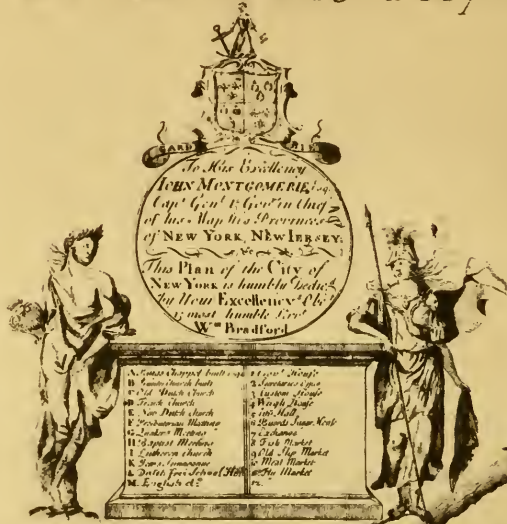 GARD BIE
To His Excellency
IOHN MONTGOMERIE, Esq.
Capt. Genl. & Govr. in Chief
of his Majties Provinces
of NEW YORK, NEW IERSEY,
This Plan of the City of
NEW YORK is humbly Dedictd
by Your Excellencys
& most humble Servt
Wm Bradford
A. Chappel built
B. Church built
C. Old Dutch Church
D. French Church
E. New Dutch Church
F. Presbyterian Meeting
G. Quakers Meeting
H. Baptist Meeting
I. Lutheran Church
K. Jews Synagogue
L. Dutch Free School
M. English do.
1 Govrs House
2 Secretaries Office
3 Custom House
4 Weigh House
5 City Hall
6 Sugar House
7 Exchange
8 Fish Market
9 Old Slip Market
10 Meat Market
11 Fly Market
12.